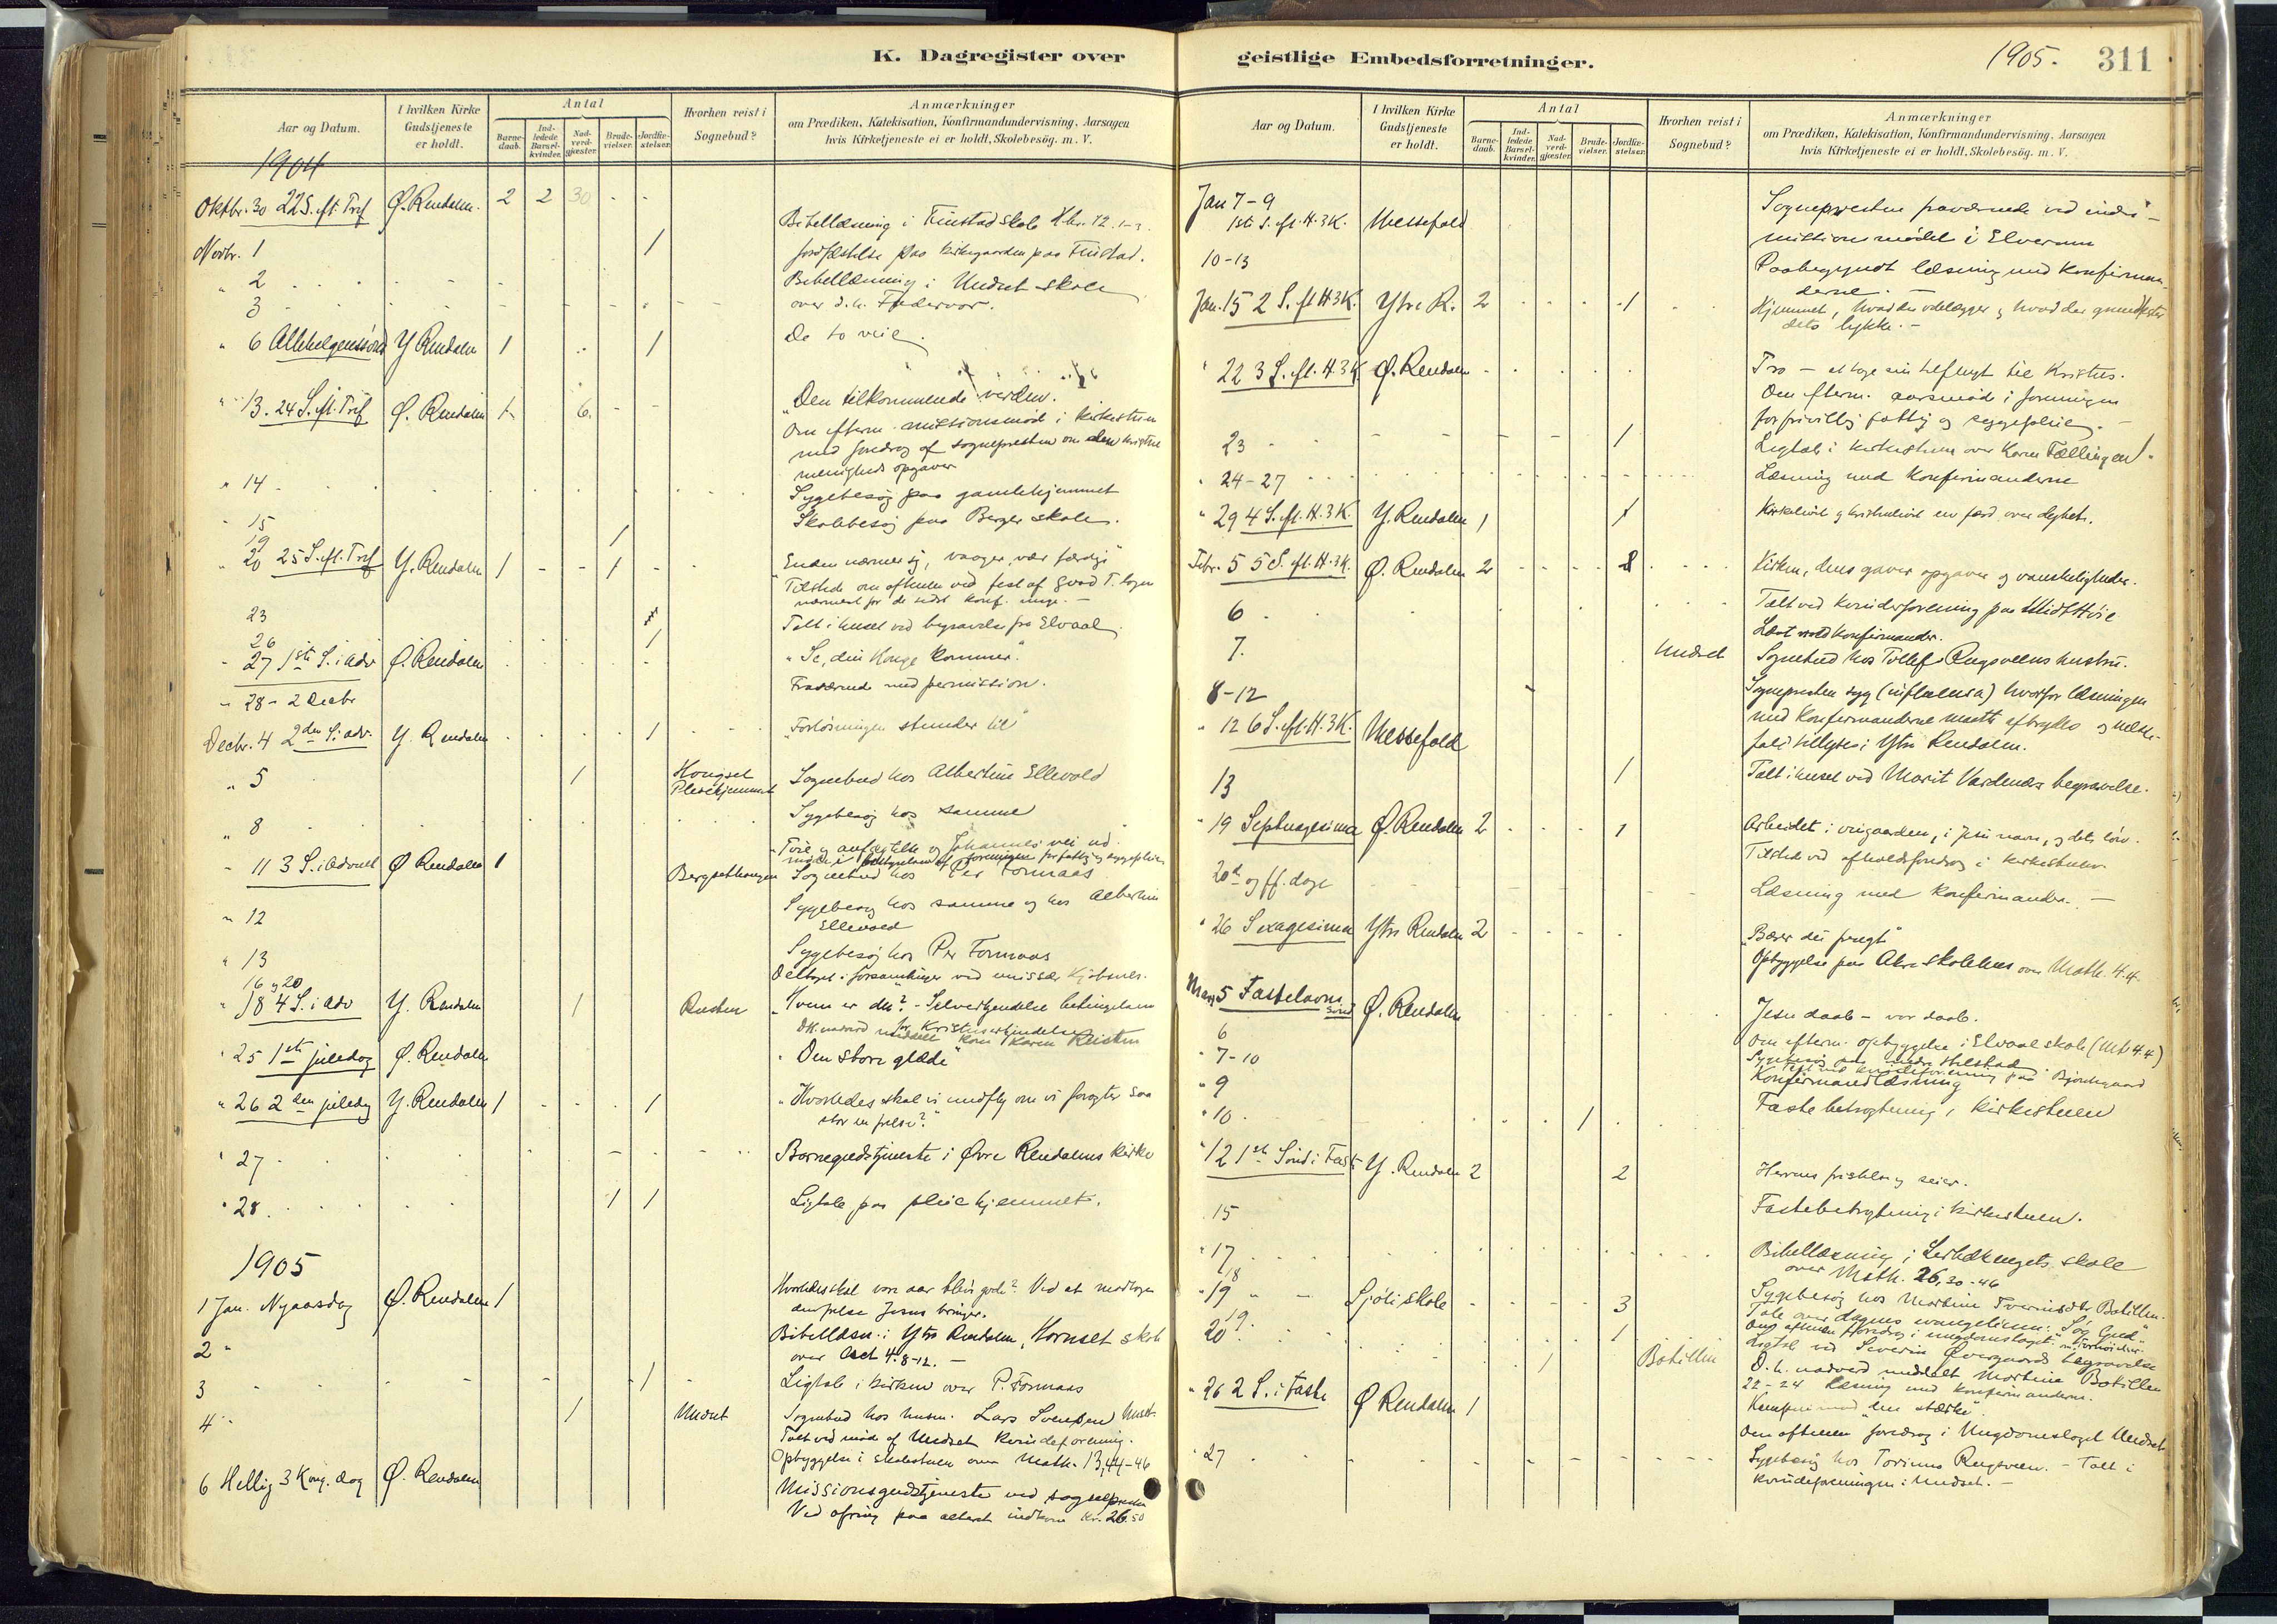 K. Dagregister over
Aar og Datum.
I hvilken Kirke Gudstjeneste er holdt.
Antal
Barnedaab.
Indledede Barselkvinder.
Nadverdgjester.
Brudevielser.
Jordfæstelser.
Hvorhen reist i Sognebud?
Anmærkninger
om Prædiken, Katekisation, Konfirmandundervisning, Aarsagen
hvis Kirketjeneste ei er holdt, Skolebesög. m. V.
1904
Oktbr. 30 22 S. eft. Tref Ø. Rendalen. 2 2 30
Bibellæsning i Finstad skole Hbr. 12. 1-3.
Novbr. 1 1 Jordfæstelse paa kirkegaarden paa Finstad.
" 2 Bibellæsning i Undset skole
3 over d. h. Fadervor.
" 6 Allehelgenssønd Y Rendalen 1 1 De to veie.
" 13. 24 S. eft. Tref Ø. Rendalen 1 6. "Den tilkommende verden.
Om efterm. missionsmøde i kirkestuen
med foredrag af sognepresten om den kristne
menigheds opgaver
" 14 Sygebesøg paa gamlehjemmet
" 15 Skolebesøg paa Berger skole.
19 1
" 20 25 S. eft. Tref Y. Rendalen 1 1 "Enden nærmer sig, vaager, vær færdige"
Tilstede om aftenen ved fest af Good T. logen
nærmest for de sidst konf. unge. -
23 1 Talt i huset ved begravelse fra Elvaal.
26 1
" 27 1ste S. i adv Ø. Rendalen "Se, din Konge kommer".
" 28 - 2 Decbr Fraværende med permission.
Decbr. 4 2den S. i adv. Y. Rendalen 1 "Forløsningen stunder til"
" 5 1 Hougset Pleiehjemmet Sognebud hos Albertine Ellevold
" 8 Sygebesøg hos samme
" 11 3 S. i Advent Ø Rendalen 1 "Tvil og anfægtelse og Johannes vei ud.
Bergsethaugen Sognebud hos Per Formaas
" 12 Sygebesøg hos samme og hos Albertine
Ellevold
" 13 Sygebesøg hos Per Formaas
16 og 20 Deltaget i forsamlinger ved
" 18 4 S. i Adv Y. Rendalen 1 "Hvem er du? - Selverkjendelse betingelsen
for Kristuserkjendelse
" 25 1ste juledag Ø. Rendalen "Den store glæde"
" 26 2den juledag Y. Rendalen 1 1 "Hvorledes skal vi undfly om vi foragter saa
stor en frelse?"
" 27 Barnegudstjeneste i Øvre Rendalens Kirke
" 28. 1 1 Ligtale paa pleiehjemmet.
1905
1 Jan. Nyaarsdag Ø. Rendalen 1 Hvorledes skal vore aar blive gode? Ved at modtage
den frelse Jesus bringer.
2 " Bibellæsn. i Ytre Rendalen, Hornset skole
over Act 4. 8-12. -
3 1 Ligtale i kirken over P. Formaas
4 1 Undset Sognebud hos husm. Lars Svendsen Undset.
Talt ved møde af Undset Kvindeforening.
Opbyggelse i skolestuen over Math. 13, 44-46
6 Hellig 3 Kong. dag Ø. Rendalen Missionsgudstjeneste ved sognepresten
Ved ofring paa alteret indkom Kr. 26.50
geistlige Embedsforretninger.
1905. 311
Aar og Datum.
I hvilken Kirke Gudstjeneste er holdt.
Antal
Barnedaab.
Indledede Barselkvinder.
Nadverdgjester.
Brudevielser.
Jordfæstelser.
Hvorhen reist i Sognebud?
Anmærkninger
om Prædiken, Katekisation, Konfirmandundervisning, Aarsagen
hvis Kirketjeneste ei er holdt, Skolebesög. m. V.
Jan 7-9 Sognepresten fraværende ved indre-
1ste S. eft. H. 3 K. Messefald missionsmødet i Elverum
10-13 Paabegyndt læsning med konfirman-
derne. -
Jan. 15 2 S. eft H 3 K. Ytre R. 2 1 Hjemmet, hvad der ødelægger og hvad der grundfæster
dets lykke. -
" 22 3 S. eft. H. 3 K. Ø. Rendalen Tro - at tage sin tilflugt til Kristus.
Om efterm. aarsmøde i foreningen
for frivillig fattig og sygepleie. -
23 1 Ligtale i kirkestuen over Karen Fællingen.
" 24-27 Læsning med konfirmanderne
" 29 4 S. eft. H. 3 K. Y. Rendalen 1 1
Febr. 5 5 S. eft. H. 3 K. Ø. Rendalen 2 Kirken, dens gaver opgaver og vanskeligheder.
6 Talt ved kvindeforening paa
Læst med konfirmander.
7. Undset Sognebud hos Tollef Rugsveens hustru.
8-12 Sognepresten syg (influensa) hvorfor læsningen
" 12 6 S. eft. H. 3 K. Messefald med konfirmanderne maatte afbrydes og messe-
fald tillyses i Ytre Rendalen.
13 1 Talt i huset ved Marit Vardenæs begravelse.
" 19 Septuagesima Ø. Rendalen 2 1 Arbeidet i vingaarden, i Jesu navn, og dets løn.
Tilstede ved afholdsforedrag i kirkestuen.
20de og ff. dage Læsning med konfirmander. -
" 26 Sexagesima Ytre Rendalen 2 "Bærer din frugt"
Opbyggelse paa Akre skolehus over Math. 4.4.
Mars 5 Fastelavns sønd Ø. Rendalen Jesu daab - vor daab.
6 Om efterm. opbyggelse i Elvaal skole (Mt 4.4)
" 7-10
" 9 Konfirmandlæsning
" 10 1 Fastebetragtning i kirkestuen
" 12 1ste Sønd i Faste Y. Rendalen 2 2 Herrens fristelse og seier.
15 Fastebetragtning i kirkestuen.
" 17 Bibellæsning i skole
over Math. 26, 30-46
18 Sygebesøg hos
" 19 Sjøli skole 3 Tale over dagens evangelium: "Søg Gud"
19.
20 1 Ligtale ved Severin Øvergaards begravelse
1 D. h. nadverd meddelt
22-24 Læsning med konfirmanderne.
" 26 2 S. i Faste Ø Rendalen 1 Kampen mod "den stærke"
Om aftenen foredrag i Ungdomslaget Undset
" 27 Sygebesøg hos Rugsveen. - Talt i
kvindeforeningen i Undset. -